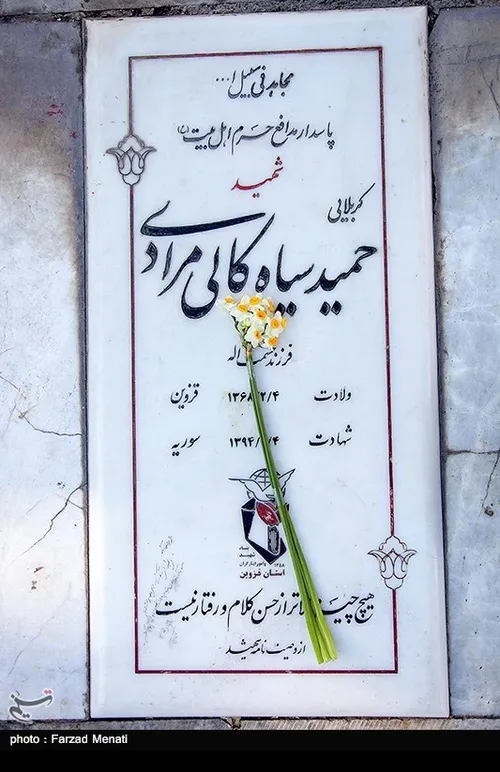 مجاهد فی سبیل ا...
پاسدار مدافع حرم اهل بیت (ع)
شهید
کربلایی
حمید سیاه کالی مرادی
فرزند حشمت اله
ولادت ۱۳۶۸/۲/۴ قزوین
شهادت ۱۳۹۴/ /۴ سوریه
بنیاد
شهید
وامور ایثارگران
۱۳۵۸
استان قزوین
هیچ چیز بالاتر از حسن کلام و رفتار نیست
از وصیت نامه شهید
تسنیم
photo : Farzad Menati